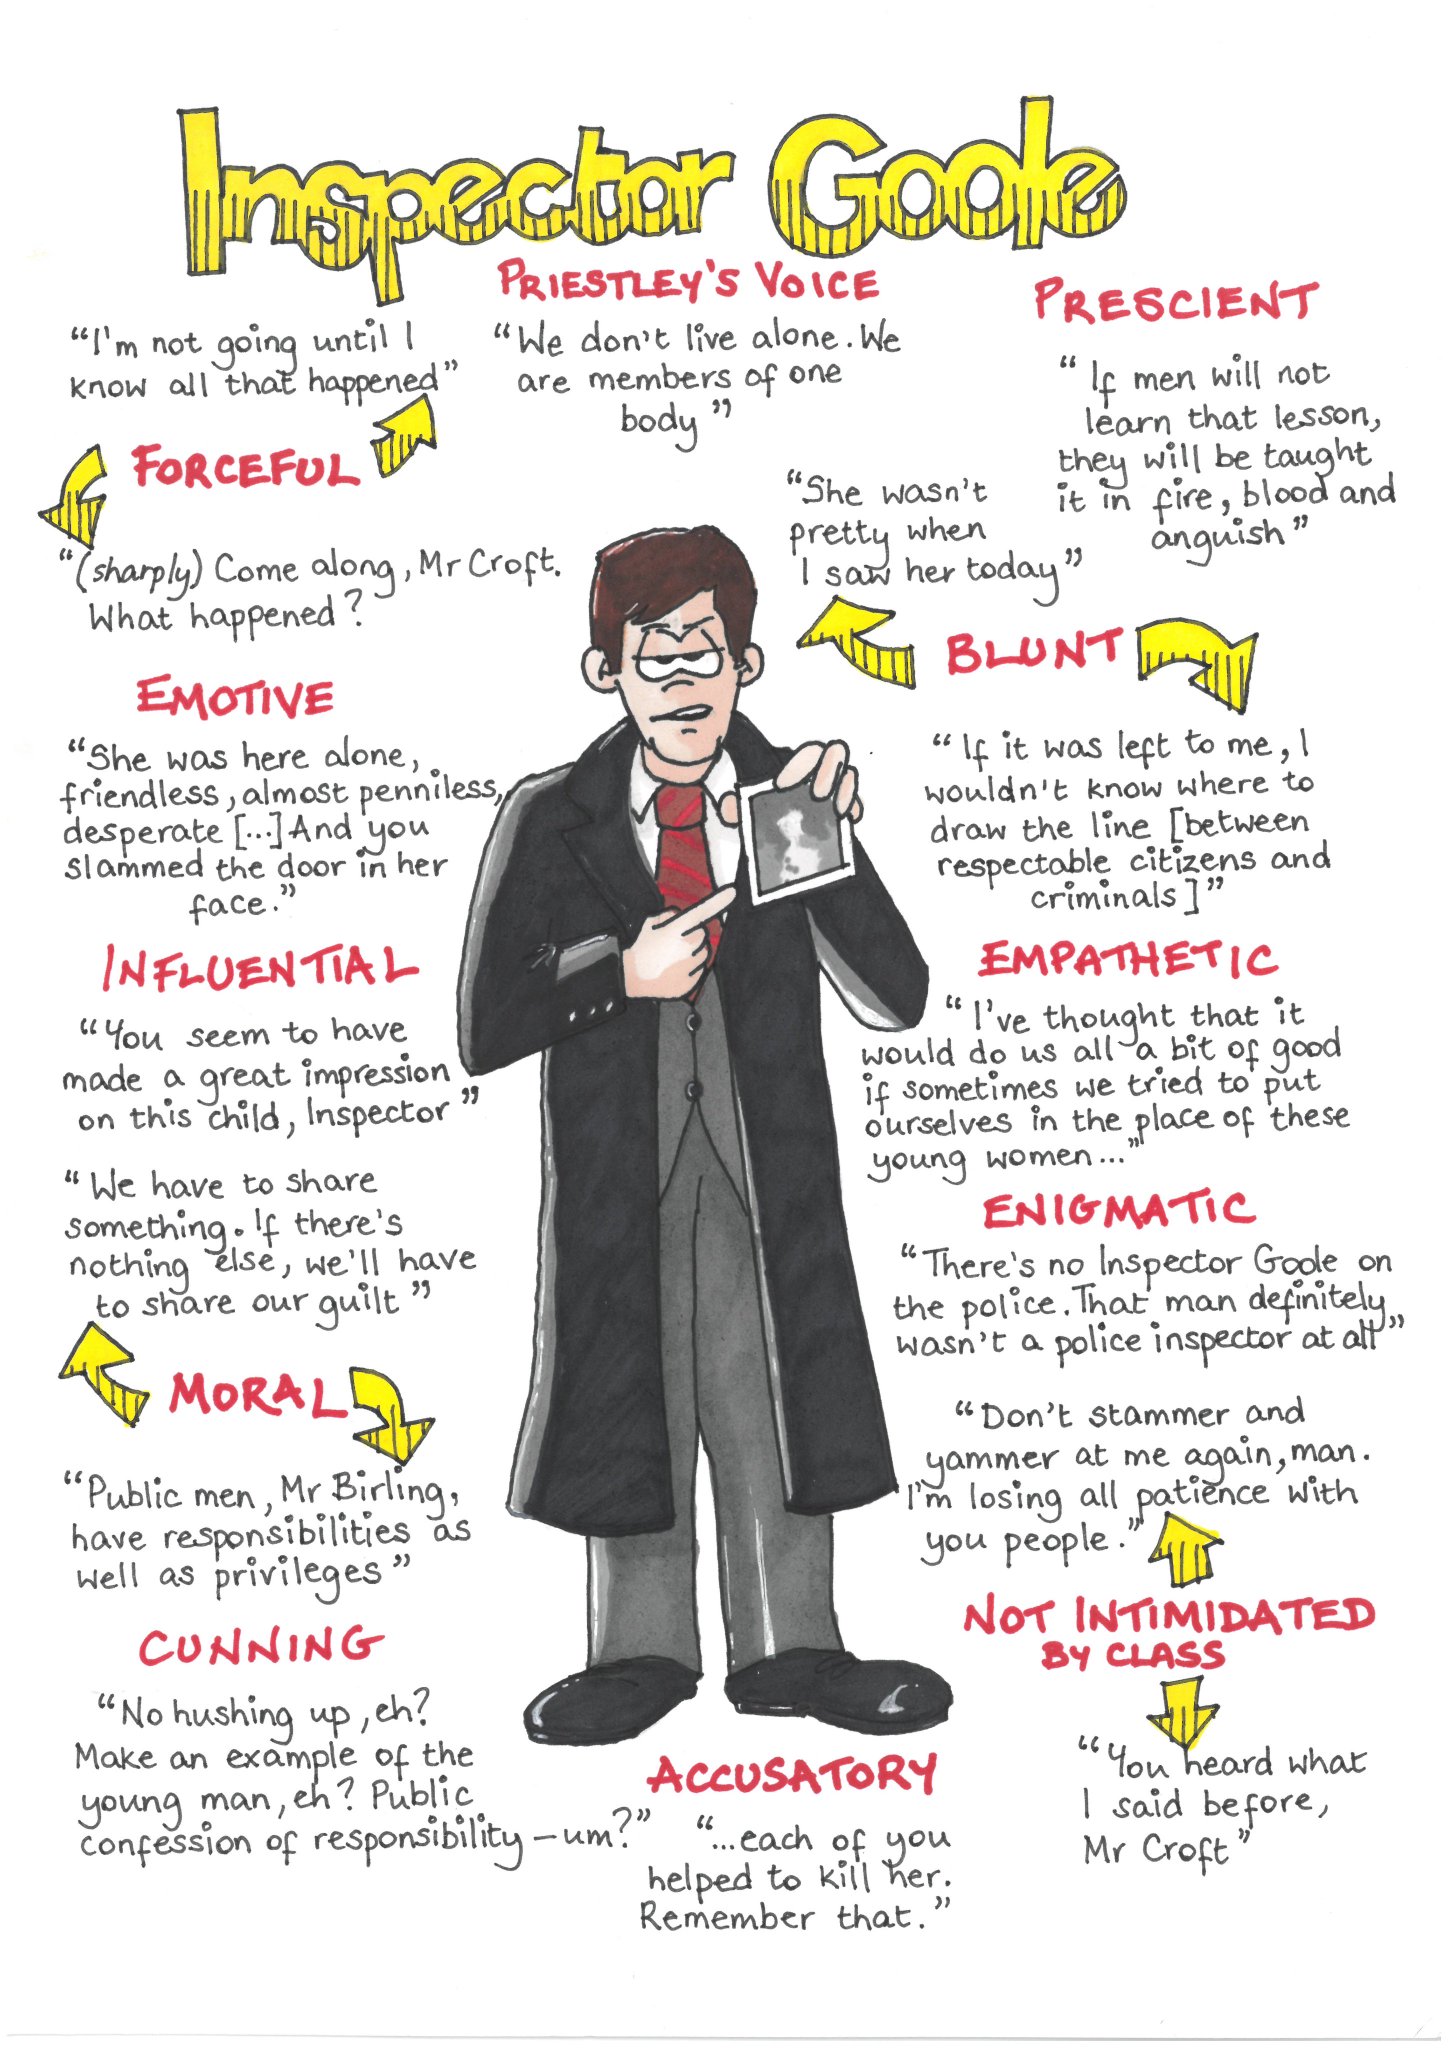 Inspector Goole
PRIESTLEY'S VOICE
"We don't live alone. We
are members of one
body"
PRESCIENT
"If men will not
learn that lesson,
they will be taught
it in fire, blood and
anguish"
"I'm not going until I
know all that happened"
FORCEFUL
"(sharply) Come along, Mr Croft.
What happened?
"She wasn't
pretty when
I saw her today"
BLUNT
"If it was left to me, I
wouldn't know where to
draw the line [between
respectable citizens and
criminals]"
EMOTIVE
"She was here alone,
friendless, almost penniless,
desperate [...] And you
slammed the door in her
face."
INFLUENTIAL
"You seem to have
made a great impression
on this child, Inspector"
EMPATHETIC
"I've thought that it
would do us all a bit of good
if sometimes we tried to put
ourselves in the place of these
young women..."
"We have to share
something. If there's
nothing else, we'll have
to share our guilt"
MORAL
"Public men, Mr Birling,
have responsibilities as
well as privileges"
ENIGMATIC
"There's no Inspector Goole on
the police. That man definitely
wasn't a police inspector at all"
"Don't stammer and
yammer at me again, man.
I'm losing all patience with
you people."
NOT INTIMIDATED
BY CLASS
"You heard what
I said before,
Mr Croft"
CUNNING
"No hushing up, eh?
Make an example of the
young man, eh? Public
confession of responsibility – um?"
ACCUSATORY
"...each of you
helped to kill her.
Remember that."